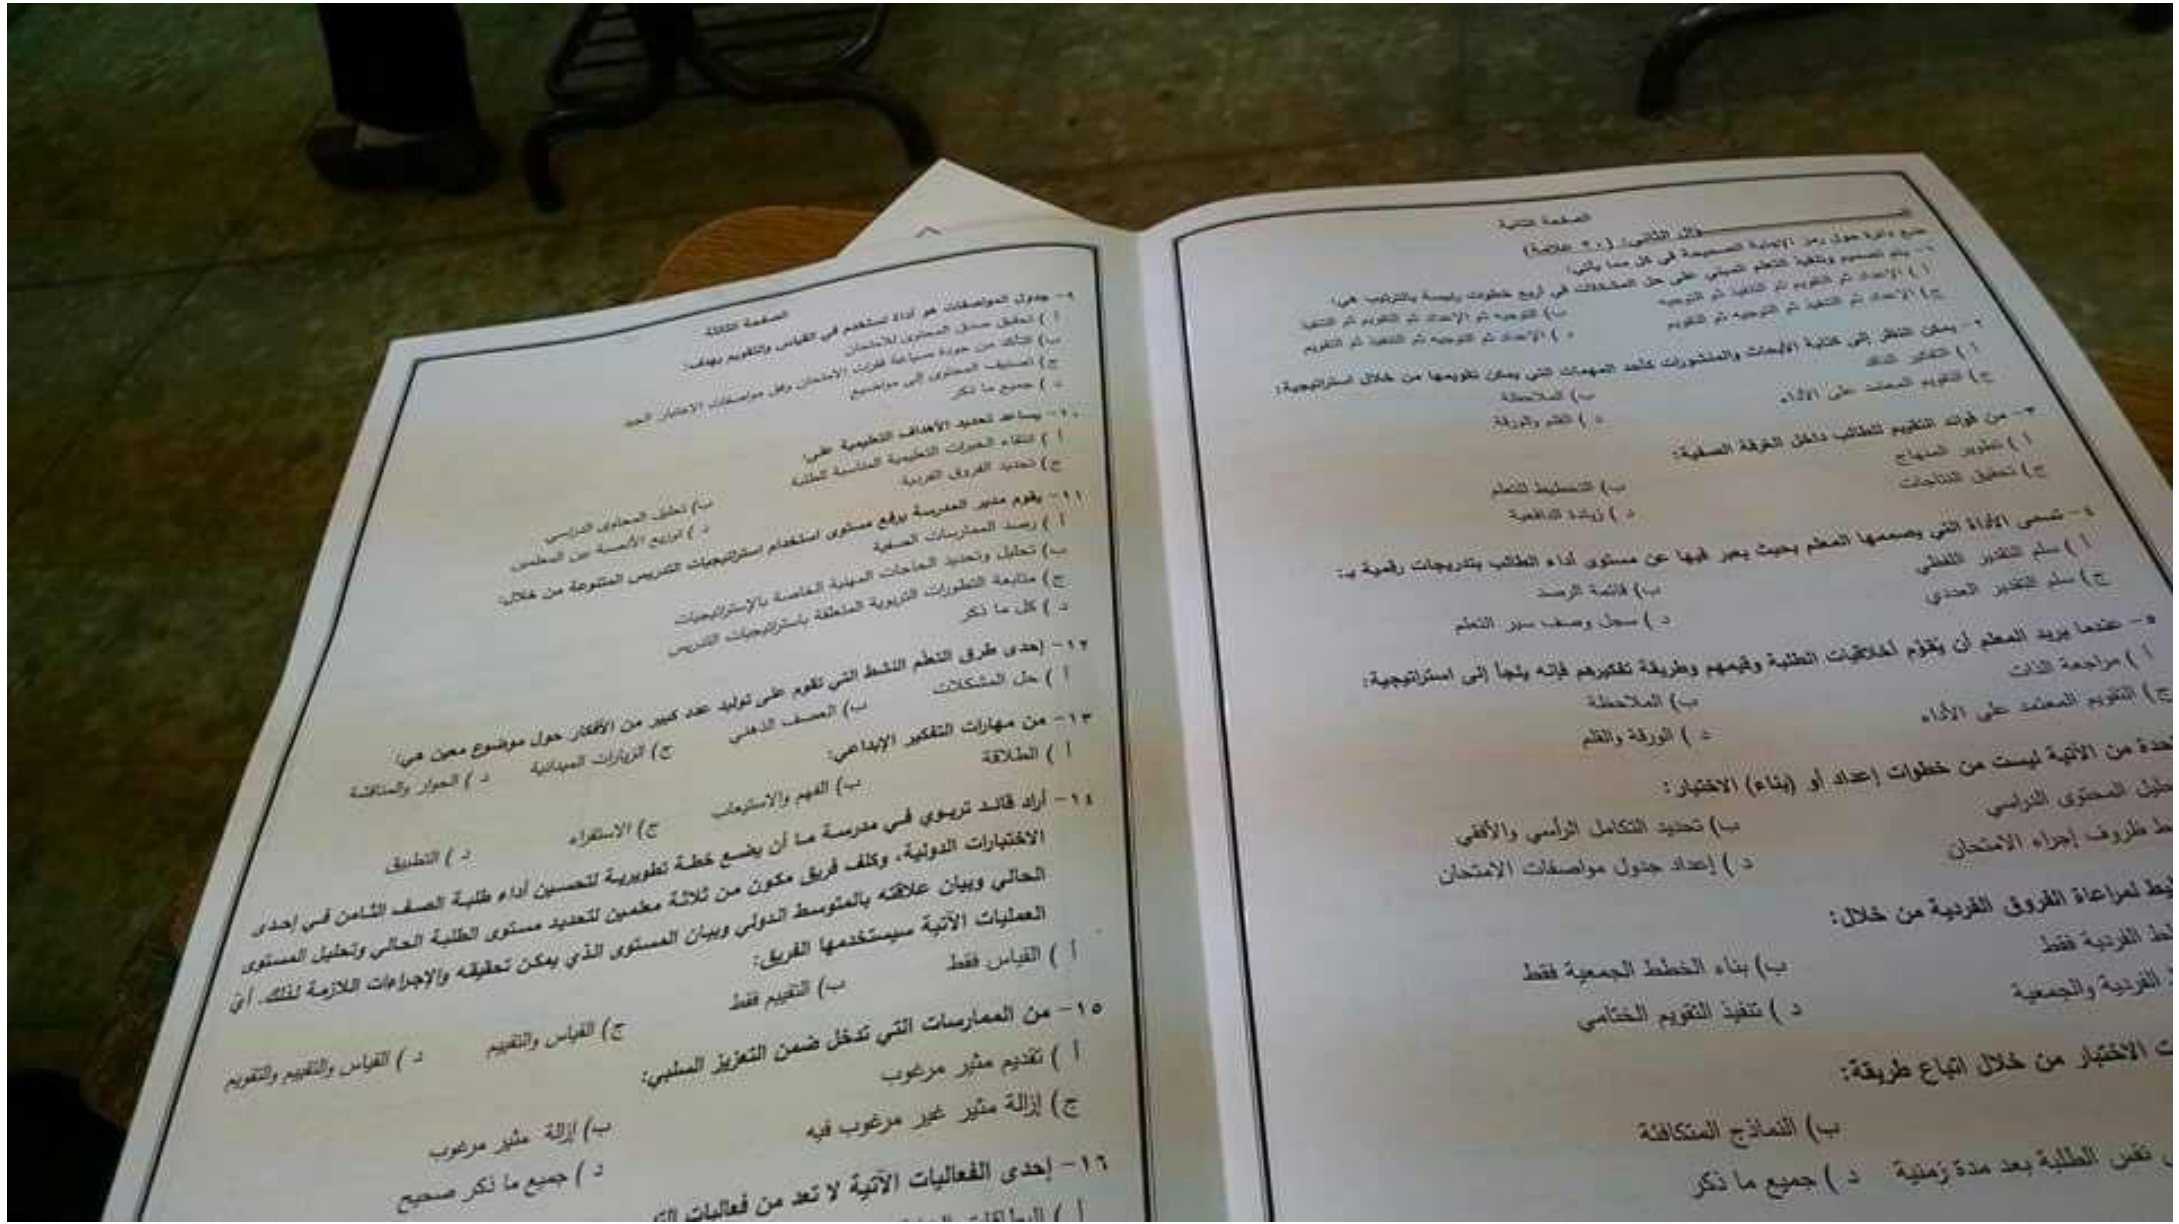 الصفحة الثانية
ؤال الثاني: (٢٠ علامة)
ضع دائرة حول رمز الإجابة الصحيحة في كل مما يأتي:
١- يتم تصميم وتنفيذ التعلم المبني على حل المشكلات في أربع خطوات رئيسة بالترتيب هي:
أ ) الإعداد ثم التقويم ثم التنفيذ ثم التوجيه ب) التوجيه ثم الإعداد ثم التقويم ثم التنفيذ
ج) الإعداد ثم التنفيذ ثم التوجيه ثم التقويم د ) الإعداد ثم التوجيه ثم التنفيذ ثم التقويم
٢- يمكن النظر إلى كتابة الأبحاث والمنشورات كأحد المهمات التي يمكن تقويمها من خلال استراتيجية:
أ ) التفكير الناقد ب) الملاحظة
ج) التقويم المعتمد على الأداء د ) القلم والورقة
٣- من فوائد التقييم للطالب داخل الغرفة الصفية:
أ ) تطوير المنهاج ب) التخطيط للتعلم
ج) تحقيق النتاجات د ) زيادة الدافعية
٤- تسمى الأداة التي يصممها المعلم بحيث يعبر فيها عن مستوى أداء الطالب بتدريجات رقمية بـ:
أ ) سلم التقدير اللفظي ب) قائمة الرصد
ج) سلم التقدير العددي د ) سجل وصف سير التعلم
٥- عندما يريد المعلم أن يُقوّم أخلاقيات الطلبة وقيمهم وطريقة تفكيرهم فإنه يلجأ إلى استراتيجية:
أ ) مراجعة الذات ب) الملاحظة
ج) التقويم المعتمد على الأداء د ) الورقة والقلم
حدة من الآتية ليست من خطوات إعداد أو (بناء) الاختبار:
حليل المحتوى الدراسي ب) تحديد التكامل الرأسي والأفقي
ط ظروف إجراء الامتحان د ) إعداد جدول مواصفات الامتحان
يط لمراعاة الفروق الفردية من خلال:
طط الفردية فقط ب) بناء الخطط الجمعية فقط
ط الفردية والجمعية د ) تنفيذ التقويم الختامي
ت الاختبار من خلال اتباع طريقة:
ب) النماذج المتكافئة
نفس الطلبة بعد مدة زمنية د ) جميع ما ذكر
الصفحة الثالثة
٩- جدول المواصفات هو أداة تستخدم في القياس والتقويم بهدف:
أ ) تحقيق صدق المحتوى للامتحان
ب) التأكد من جودة صياغة فقرات الامتحان وفق مواصفات الاختبار الجيد
ج) تصنيف المحتوى إلى مواضيع
د ) جميع ما ذكر
١٠- يساعد تحديد الأهداف التعليمية على:
أ ) انتقاء الخبرات التعليمية المناسبة للطلبة ب) تحليل المحتوى الدراسي
ج) تحديد الفروق الفردية د ) توزيع الأنصبة بين المعلمين
١١- يقوم مدير المدرسة برفع مستوى استخدام استراتيجيات التدريس المتنوعة من خلال:
أ ) رصد الممارسات الصفية
ب) تحليل وتحديد الحاجات المهنية الخاصة بالإستراتيجيات
ج) متابعة التطورات التربوية المتعلقة باستراتيجيات التدريس
د ) كل ما ذكر
١٢- إحدى طرق التعلم النشط التي تقوم على توليد عدد كبير من الأفكار حول موضوع معين هي:
أ ) حل المشكلات ب) العصف الذهني ج) الزيارات الميدانية د ) الحوار والمناقشة
١٣- من مهارات التفكير الإبداعي:
أ ) الطلاقة ب) الفهم والاستيعاب ج) الاستقراء د ) التطبيق
١٤- أراد قائد تربوي في مدرسة ما أن يضع خطة تطويرية لتحسين أداء طلبة الصف الثامن في إحدى
الاختبارات الدولية، وكلف فريق مكون من ثلاثة معلمين لتحديد مستوى الطلبة الحالي وتحليل المستوى
الحالي وبيان علاقته بالمتوسط الدولي وبيان المستوى الذي يمكن تحقيقه والإجراءات اللازمة لذلك. أيّ
العمليات الآتية سيستخدمها الفريق:
أ ) القياس فقط ب) التقييم فقط ج) القياس والتقييم د ) القياس والتقييم والتقويم
١٥- من الممارسات التي تدخل ضمن التعزيز السلبي:
أ ) تقديم مثير مرغوب ب) إزالة مثير مرغوب
ج) إزالة مثير غير مرغوب فيه د ) جميع ما ذكر صحيح
١٦- إحدى الفعاليات الآتية لا تعد من فعاليات